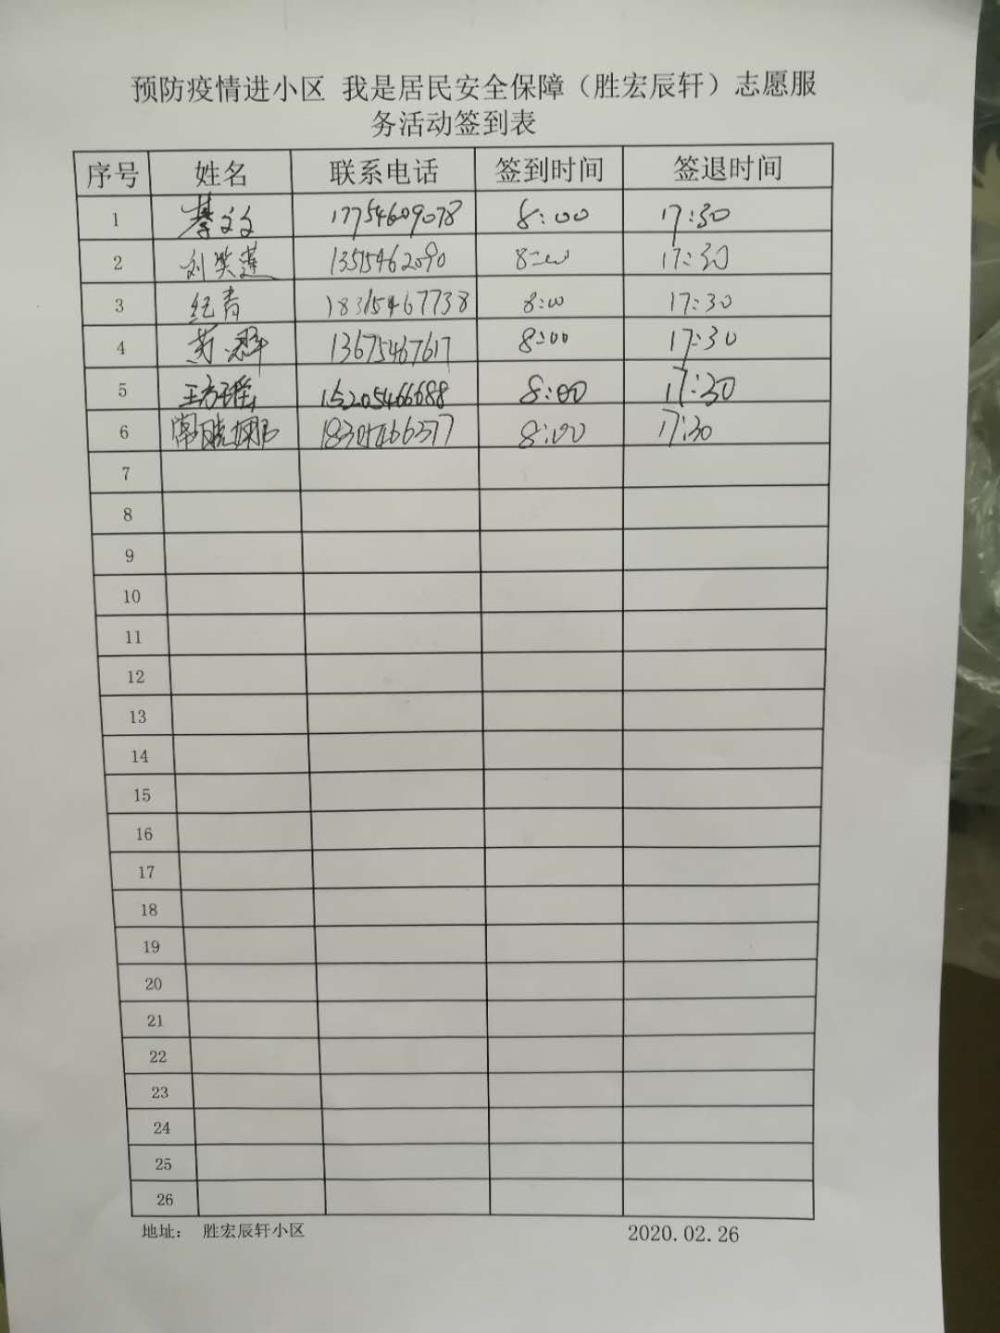 预防疫情进小区 我是居民安全保障（胜宏辰轩）志愿服
务活动签到表
序号 姓名 联系电话 签到时间 签退时间
1 綦文文 17754609078 8:00 17:30
2 刘笑莲 13515462090 8:00 17:30
3 纪青 18315467738 8:00 17:30
4 13675467617 8:00 17:30
5 15205466688 8:00 17:30
6 常晓娜 8:00 17:30
7
8
9
10
11
12
13
14
15
16
17
18
19
20
21
22
23
24
25
26
地址： 胜宏辰轩小区 2020.02.26